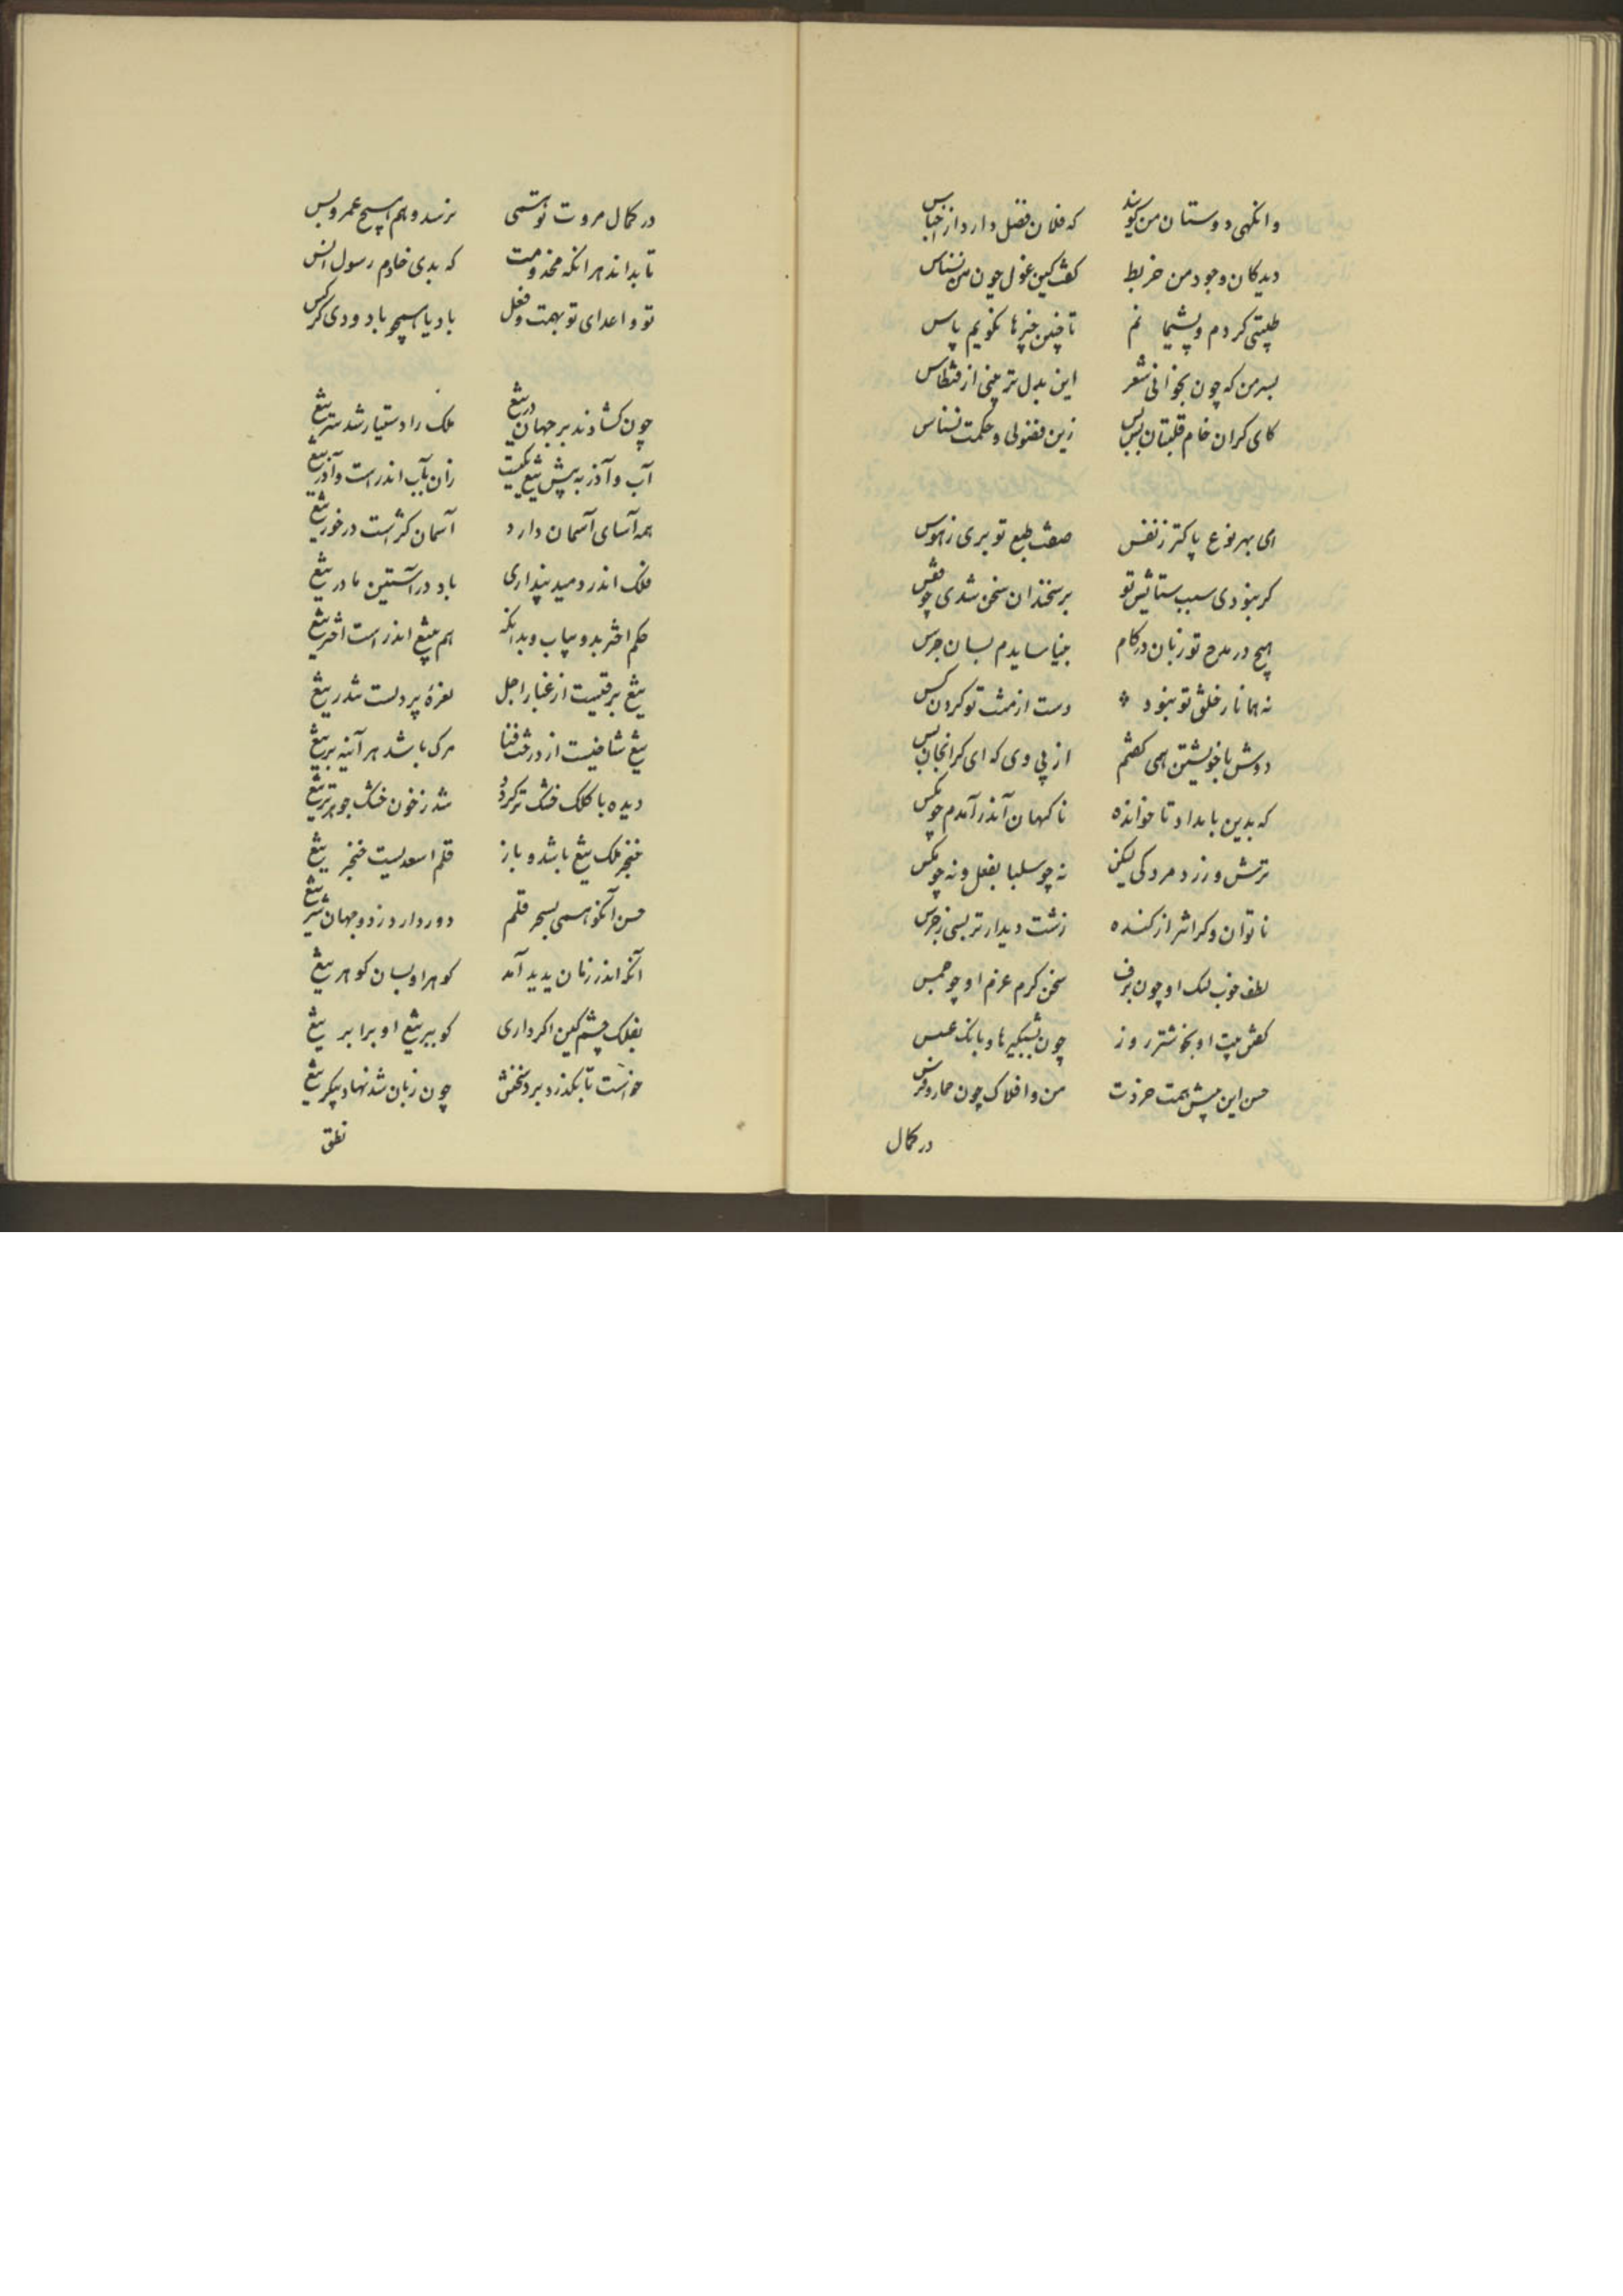 وانکهی دوستان من کویند که فلان فضل دارد از اجناس
دیدکان وجود من خربط کفت کین غول چون من نسناس
طیبتی کردم و پشیمانم تا چنین چیزها نکویم پاس
بسر من که چون بخوانی شعر این بدل تر چنی از
کای کران خام قلتبان بس بس زین فضولی و حکمت نسناس
ای بهر نوع پاکتر ز نفس صفت طبع تو بری ز هوس
کر نبودی سبب ستایش تو بر سخندان سخن شدی چو قفس
هیچ در مدح تو زبان در کام نیاسایدم بسان جرس
نه همانا ز خلق تو نبود دست از مثت تو کردن کس
دوش با خویشتن همی کفتم از پی وی که ای کرانجان بس
که بدین بامداد ناخوانده ناکهان اندر آمدم چو مکس
ترش و زرد مردکی لیکن نه چو بفعل و نه چو مکس
ناتوان و کرانتر از کنده زشت دیدارتر بسی ز خرس
لطف خوب لک او چون برف سخن کرم عزم او چو
کفش پیت او بخوشتر روز چون شبکیرها و بانک عسس
حسن این پیش همت خردت من و افلاک چون حمار و فرس
در کمال
در کمال مروت تو همی نرسد وهم هیچ عمرو بس
تا بداند هر انکه مخدومت که بدی خادم رسول انس
تو و اعدای تو بهمت و فعل باد یا همچو باد و دی کرکس
چون کشادند بر جهان در تیغ ملک را دستیار شد سر تیغ
آب و آذر به پیش تیغ یکیست زان بآب اندر است و آذر تیغ
همه آسای آسمان دارد آسمان کر است در خور تیغ
فلک اندر دمید پنداری باد در آستین مادر تیغ
حکم اختر بدو بیاب و بدانکه هم بتیغ اندر است اختر تیغ
تیغ برقیست از غبار اجل نعرهٔ پر دلست تندر تیغ
تیغ شاخیست از درخت فنا مرک باشد هر آینه بر تیغ
دیده با کلک خشک تر کردد شد ز خون خشک جوهر تر تیغ
خنجر ملک تیغ باشد و باز قلم اسعدیست خنجر تیغ
حسن آنکو همی بسحر قلم دور دارد ز دو جهان شر تیغ
آنکه اندر زمان پدید آمد کوهر او بسان کوهر تیغ
بفلک چشم کین اکر داری کو ببر تیغ او برابر تیغ
خواست تا بکذرد ببرد سخنش چون زبان شد نهاد پیکر تیغ
نطق